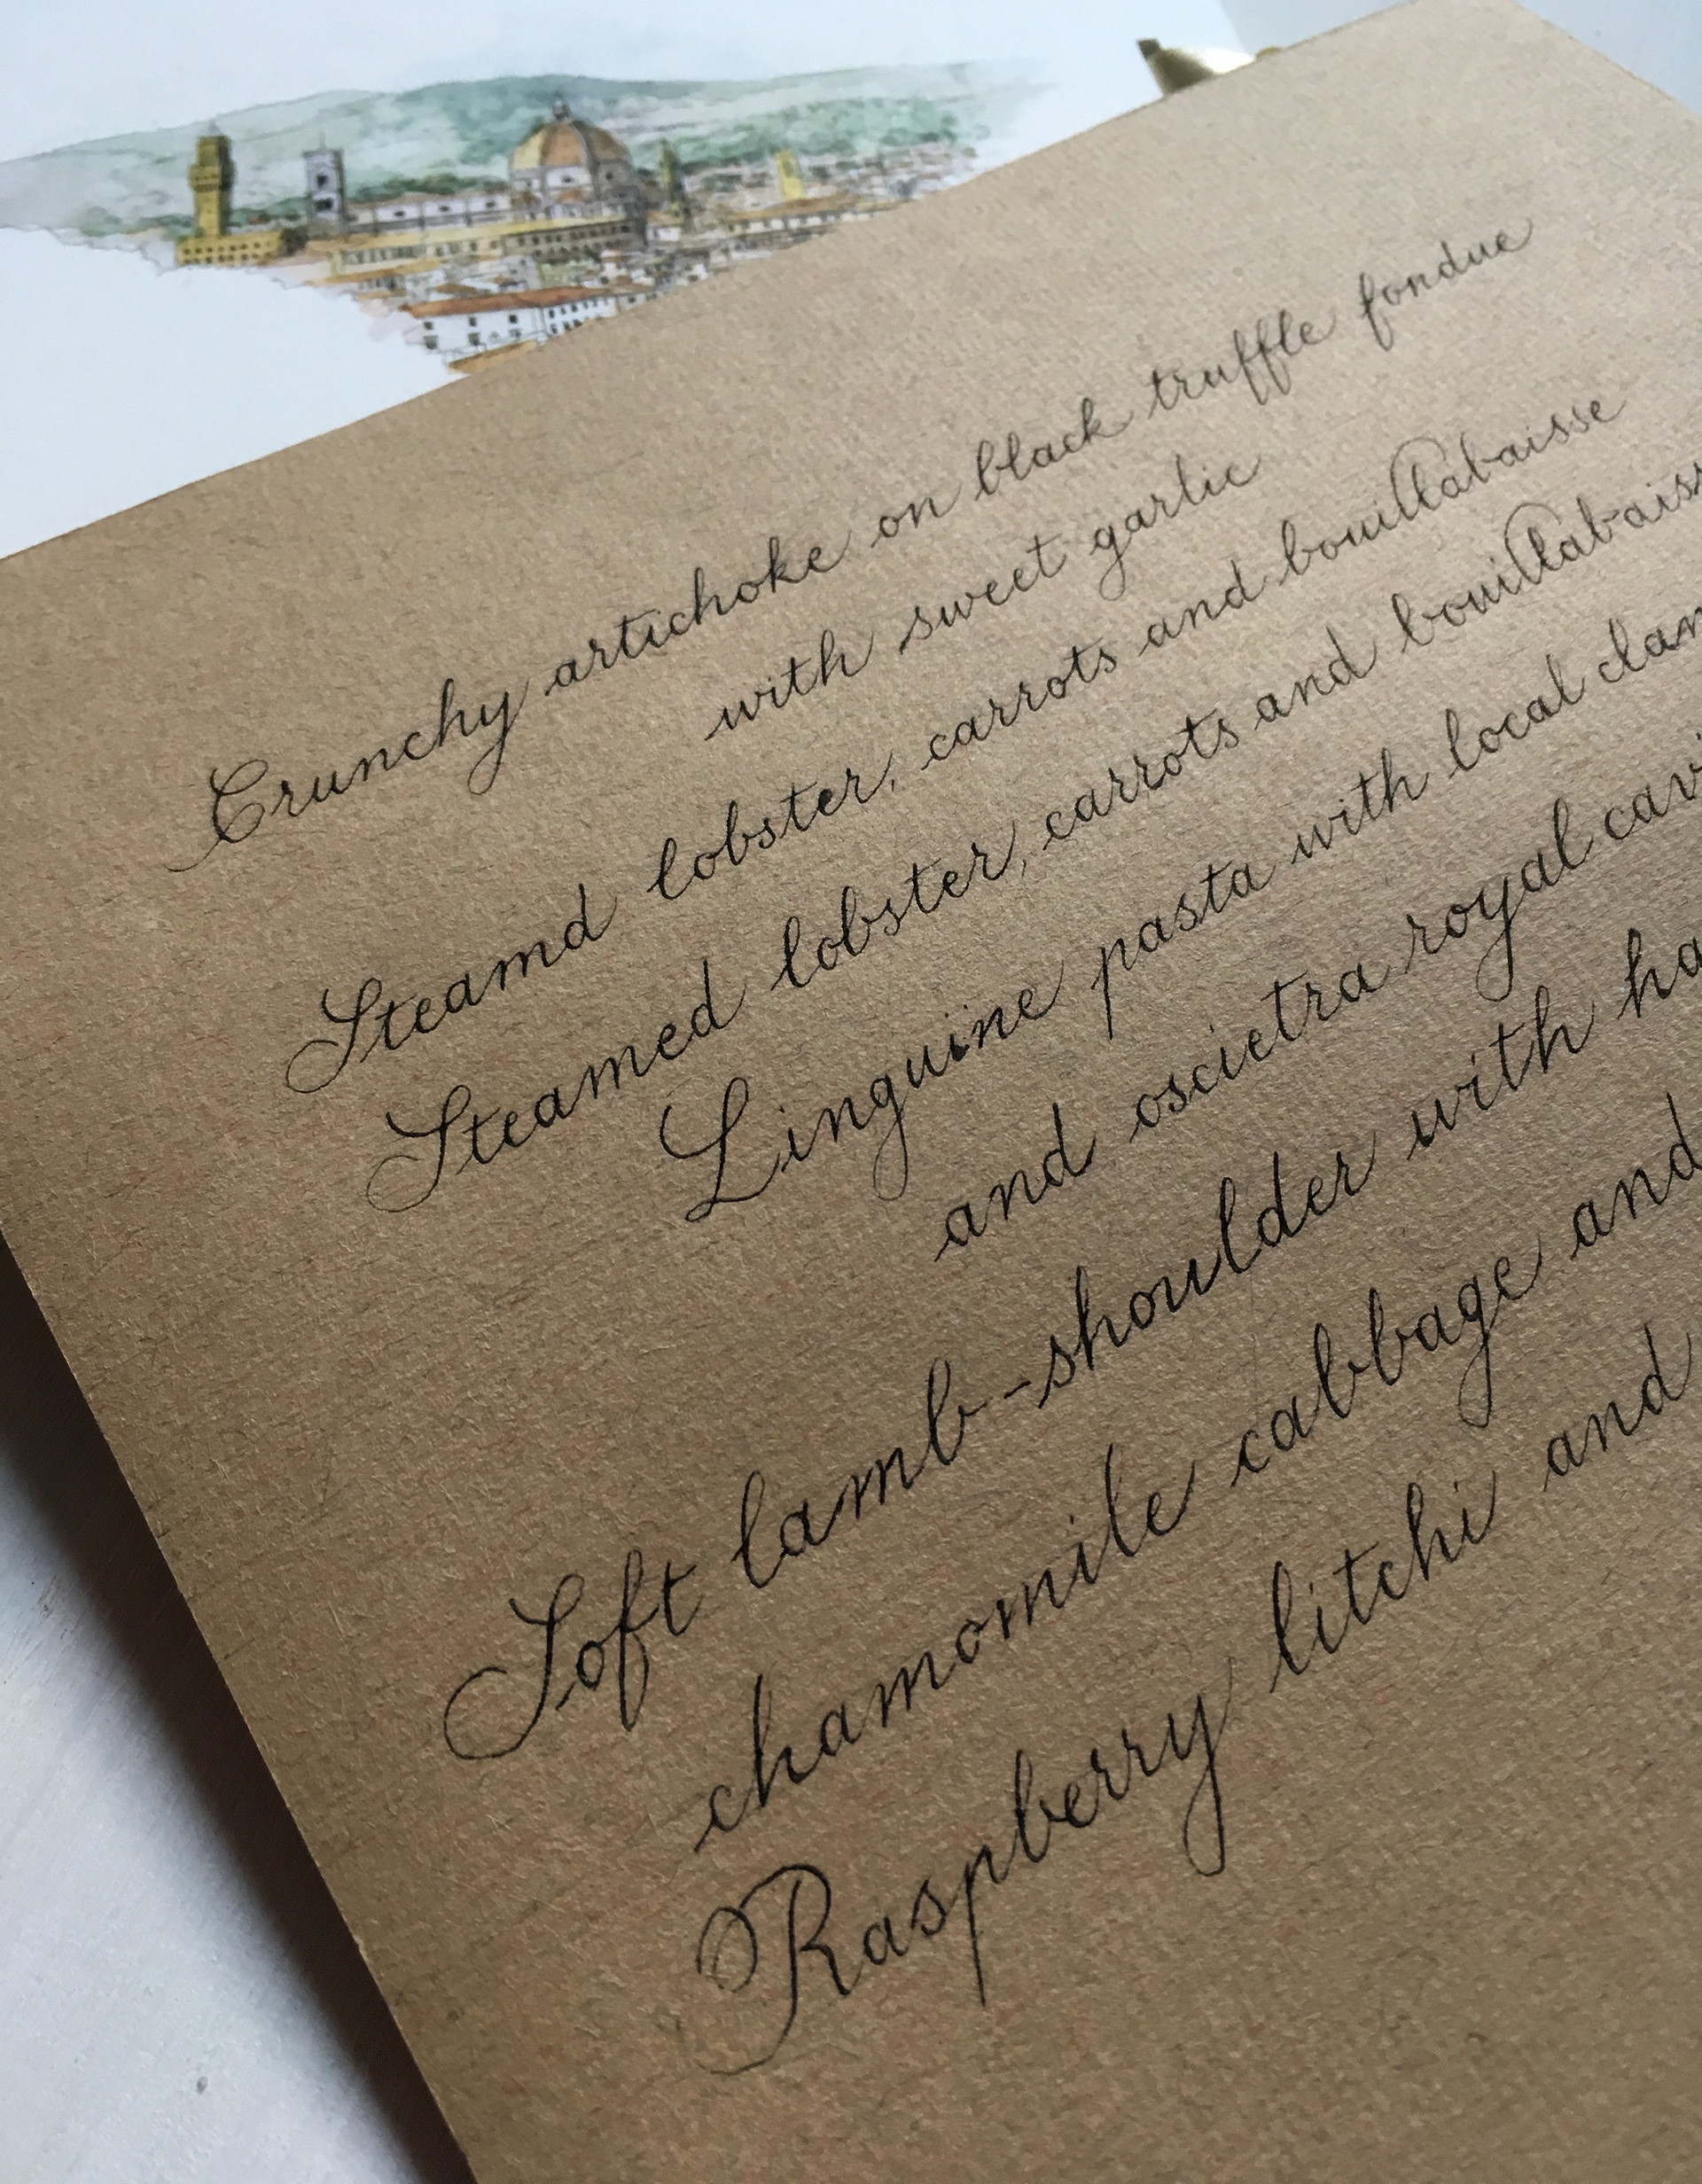 Crunchy artichoke on black truffle fondue
with sweet garlic
Steamd lobster, carrots and bouillabaisse
Steamed lobster, carrots and bouillabaiss
Linguine pasta with local clam
and oscietra royal cavi
Soft lamb-shoulder with ha
chamomile cabbage and
Raspberry litchi and